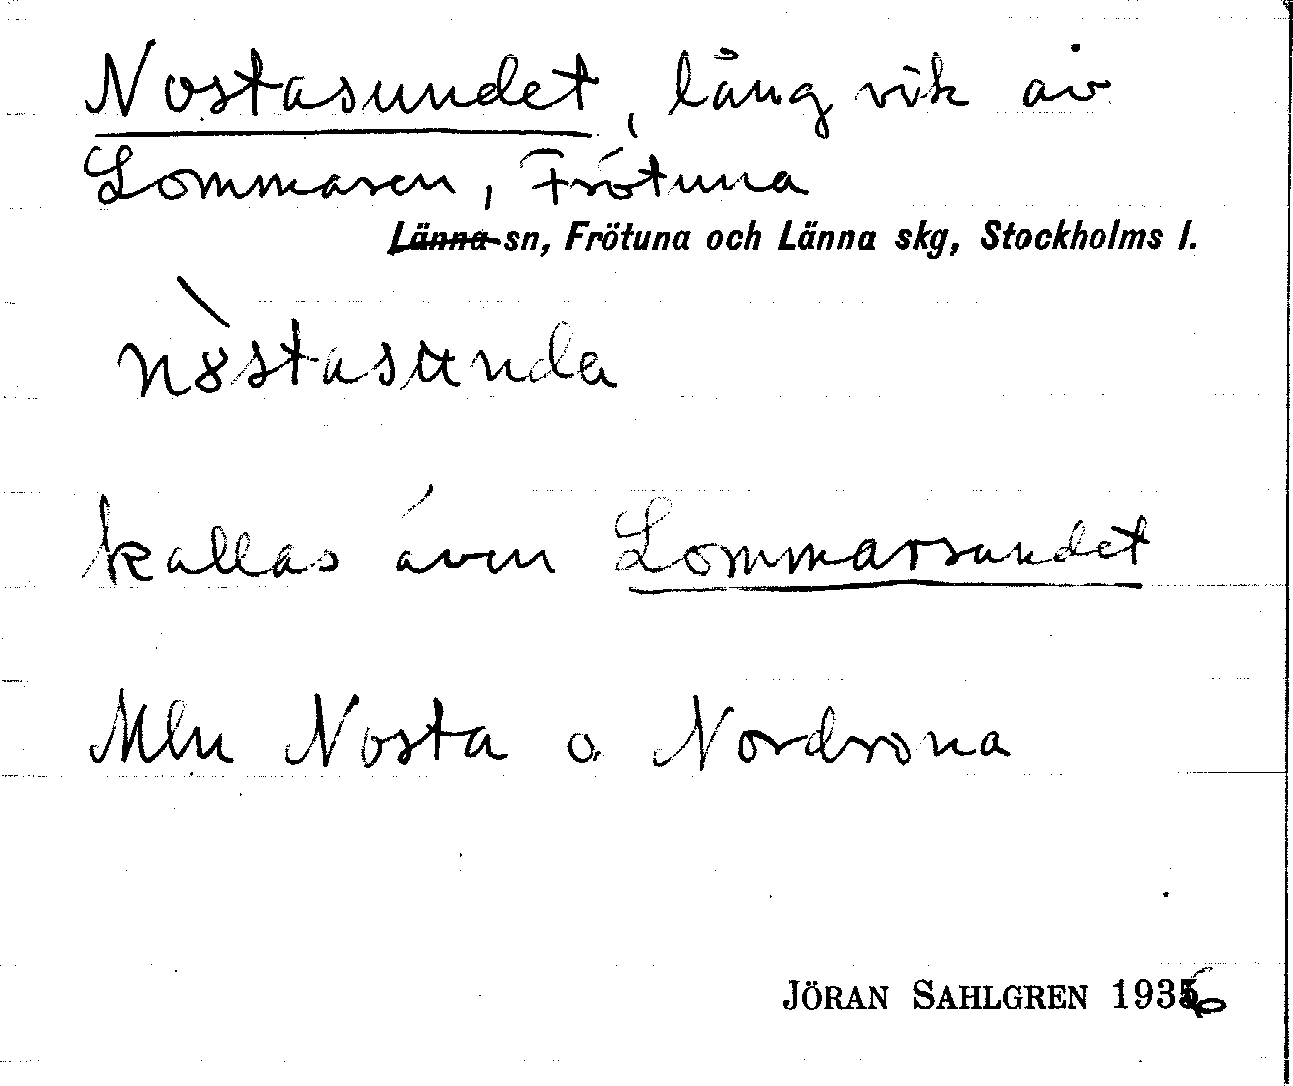 Nostasundet, lång vik av
Lommaren, Frötuna
Länna sn, Frötuna och Länna skg, Stockholms l.
n8̀stasunda
kallas även Lommarsundet
Mln Nosta o. Nordrona
JÖRAN SAHLGREN 1936